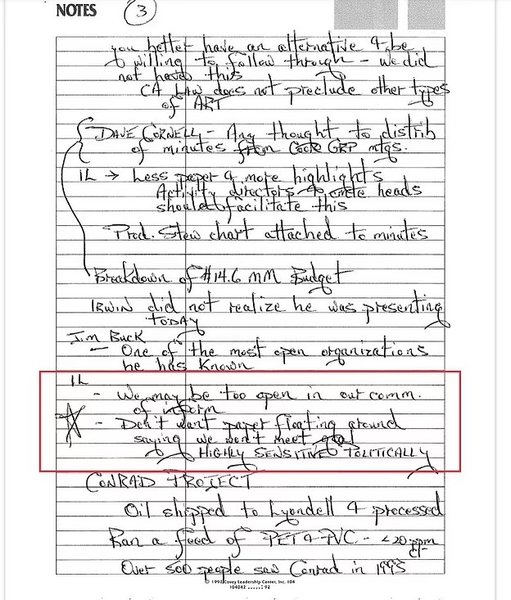 NOTES
3
you better have an alternative & be
willing to follow through - we did
not have this
CA Law does not preclude other types
of ART
DAVE CORNELL - Any thought to distrib
of minutes from GRP mtgs.
IL → Less paper & more highlights
Activity directors & heads
should facilitate this
Prod. Stew chart attached to minutes
Breakdown of $14.6 MM Budget
IRWIN did not realize he was presenting
TODAY
Jim Buck
- One of the most open organizations
he has known
IL
- We may be too open in our comm.
of inform
- Don't want paper floating around
saying we won't meet goal
HIGHLY SENSITIVE POLITICALLY
CONRAD PROJECT
Oil shipped to Lyondell & processed
Ran a feed of PET & PVC - <20 ppm
Cl-
Over 500 people saw Conrad in 1993
© 1992 Covey Leadership Center, Inc.